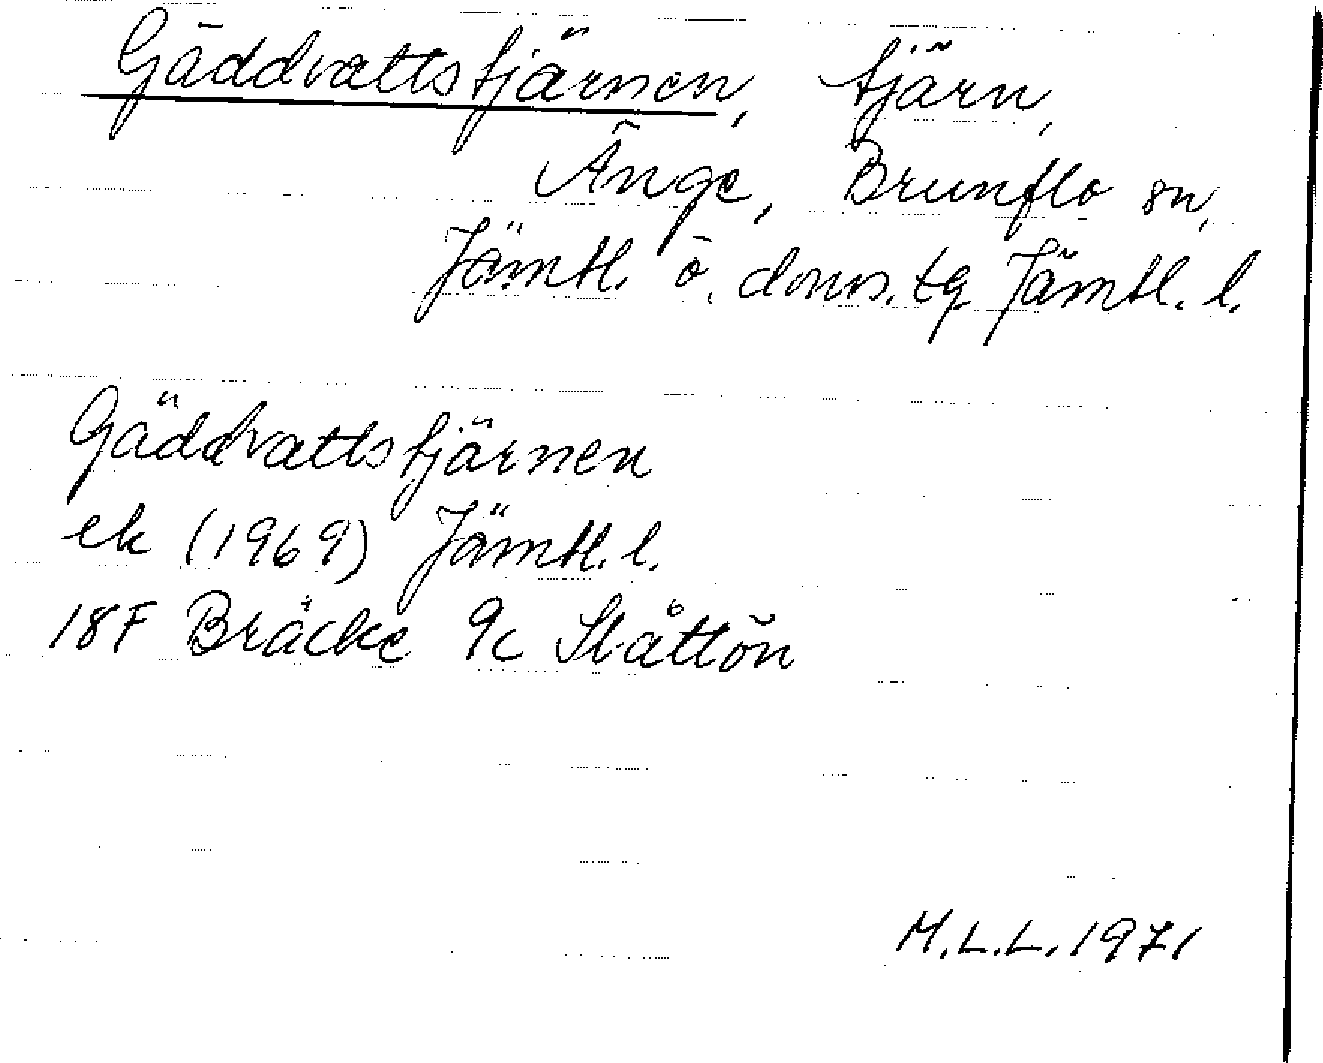 Gäddvattstjärnen, tjärn,
Änge, Brunflo sn,
Jämtl. ö. doms. tg Jämtl. l.
Gäddvattstjärnen
ek (1969) Jämtl. l.
18F Bräcke 9c Slåttön
M.L.L. 1971